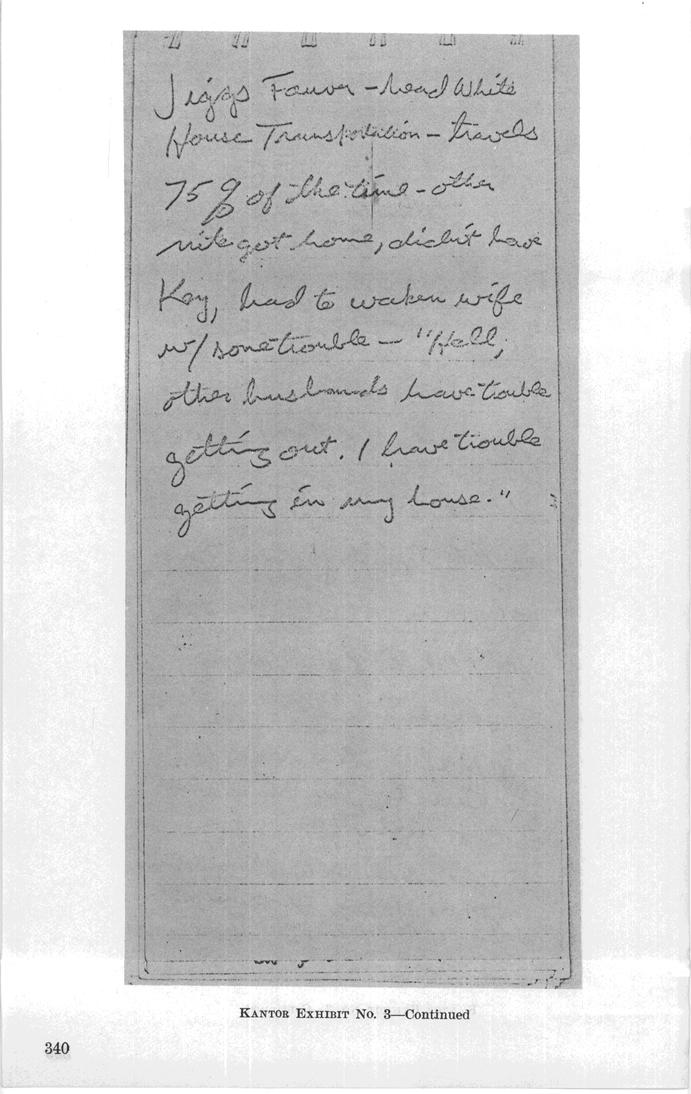 Jiggs Fauver - head White
House Transportation - travels
75% of the time - other
nite got home, didn't have
Key, had to waken wife
w/ some trouble - "Hell,
other husbands have trouble
getting out. I have trouble
getting in my house."
KANTOR EXHIBIT No. 3—Continued
340